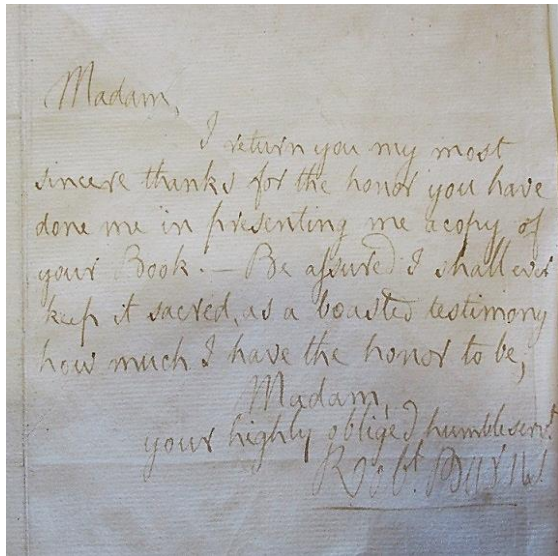 Madam,
I return you my most
sincere thanks for the honor you have
done me in presenting me a copy of
your Book. — Be assured I shall ever
keep it sacred, as a boasted testimony
how much I have the honor to be,
Madam,
your highly obliged humble servt
Robt. Burns